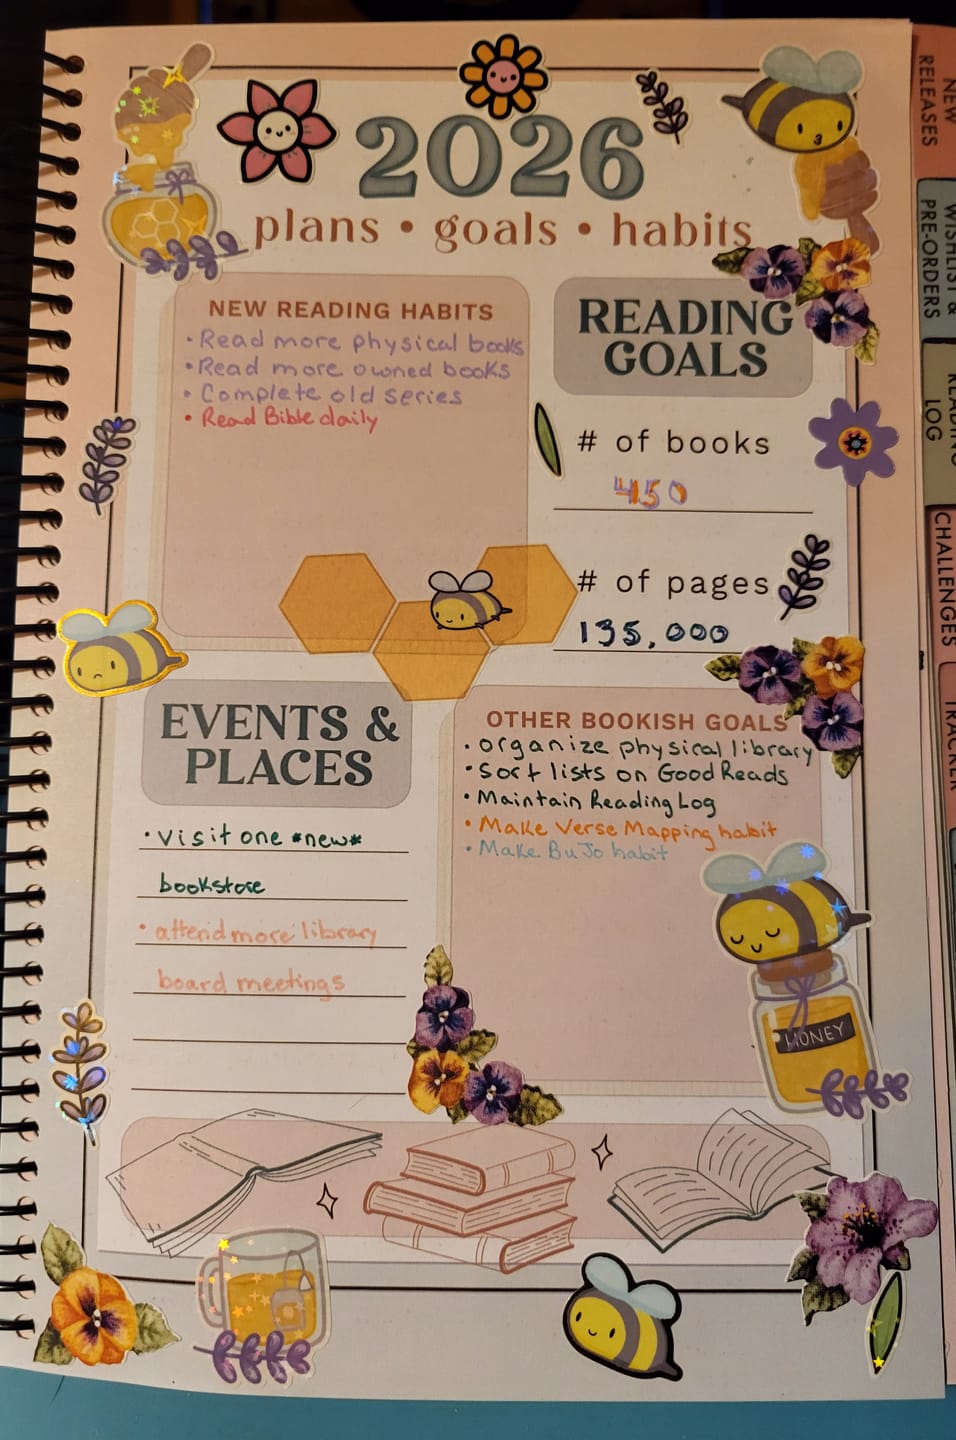 2026
plans • goals • habits
NEW READING HABITS
• Read more physical books
• Read more owned books
• Complete old series
• Read Bible daily
READING
GOALS
# of books
450
# of pages
135,000
EVENTS &
PLACES
• visit one *new*
bookstore
• attend more library
board meetings
OTHER BOOKISH GOALS
• organize physical library
• Sort lists on GoodReads
• Maintain Reading Log
• Make Verse Mapping habit
• Make BuJo habit
HONEY
NEW
RELEASES
WISHLIST &
PRE-ORDERS
READING
LOG
CHALLENGES
TRACKER